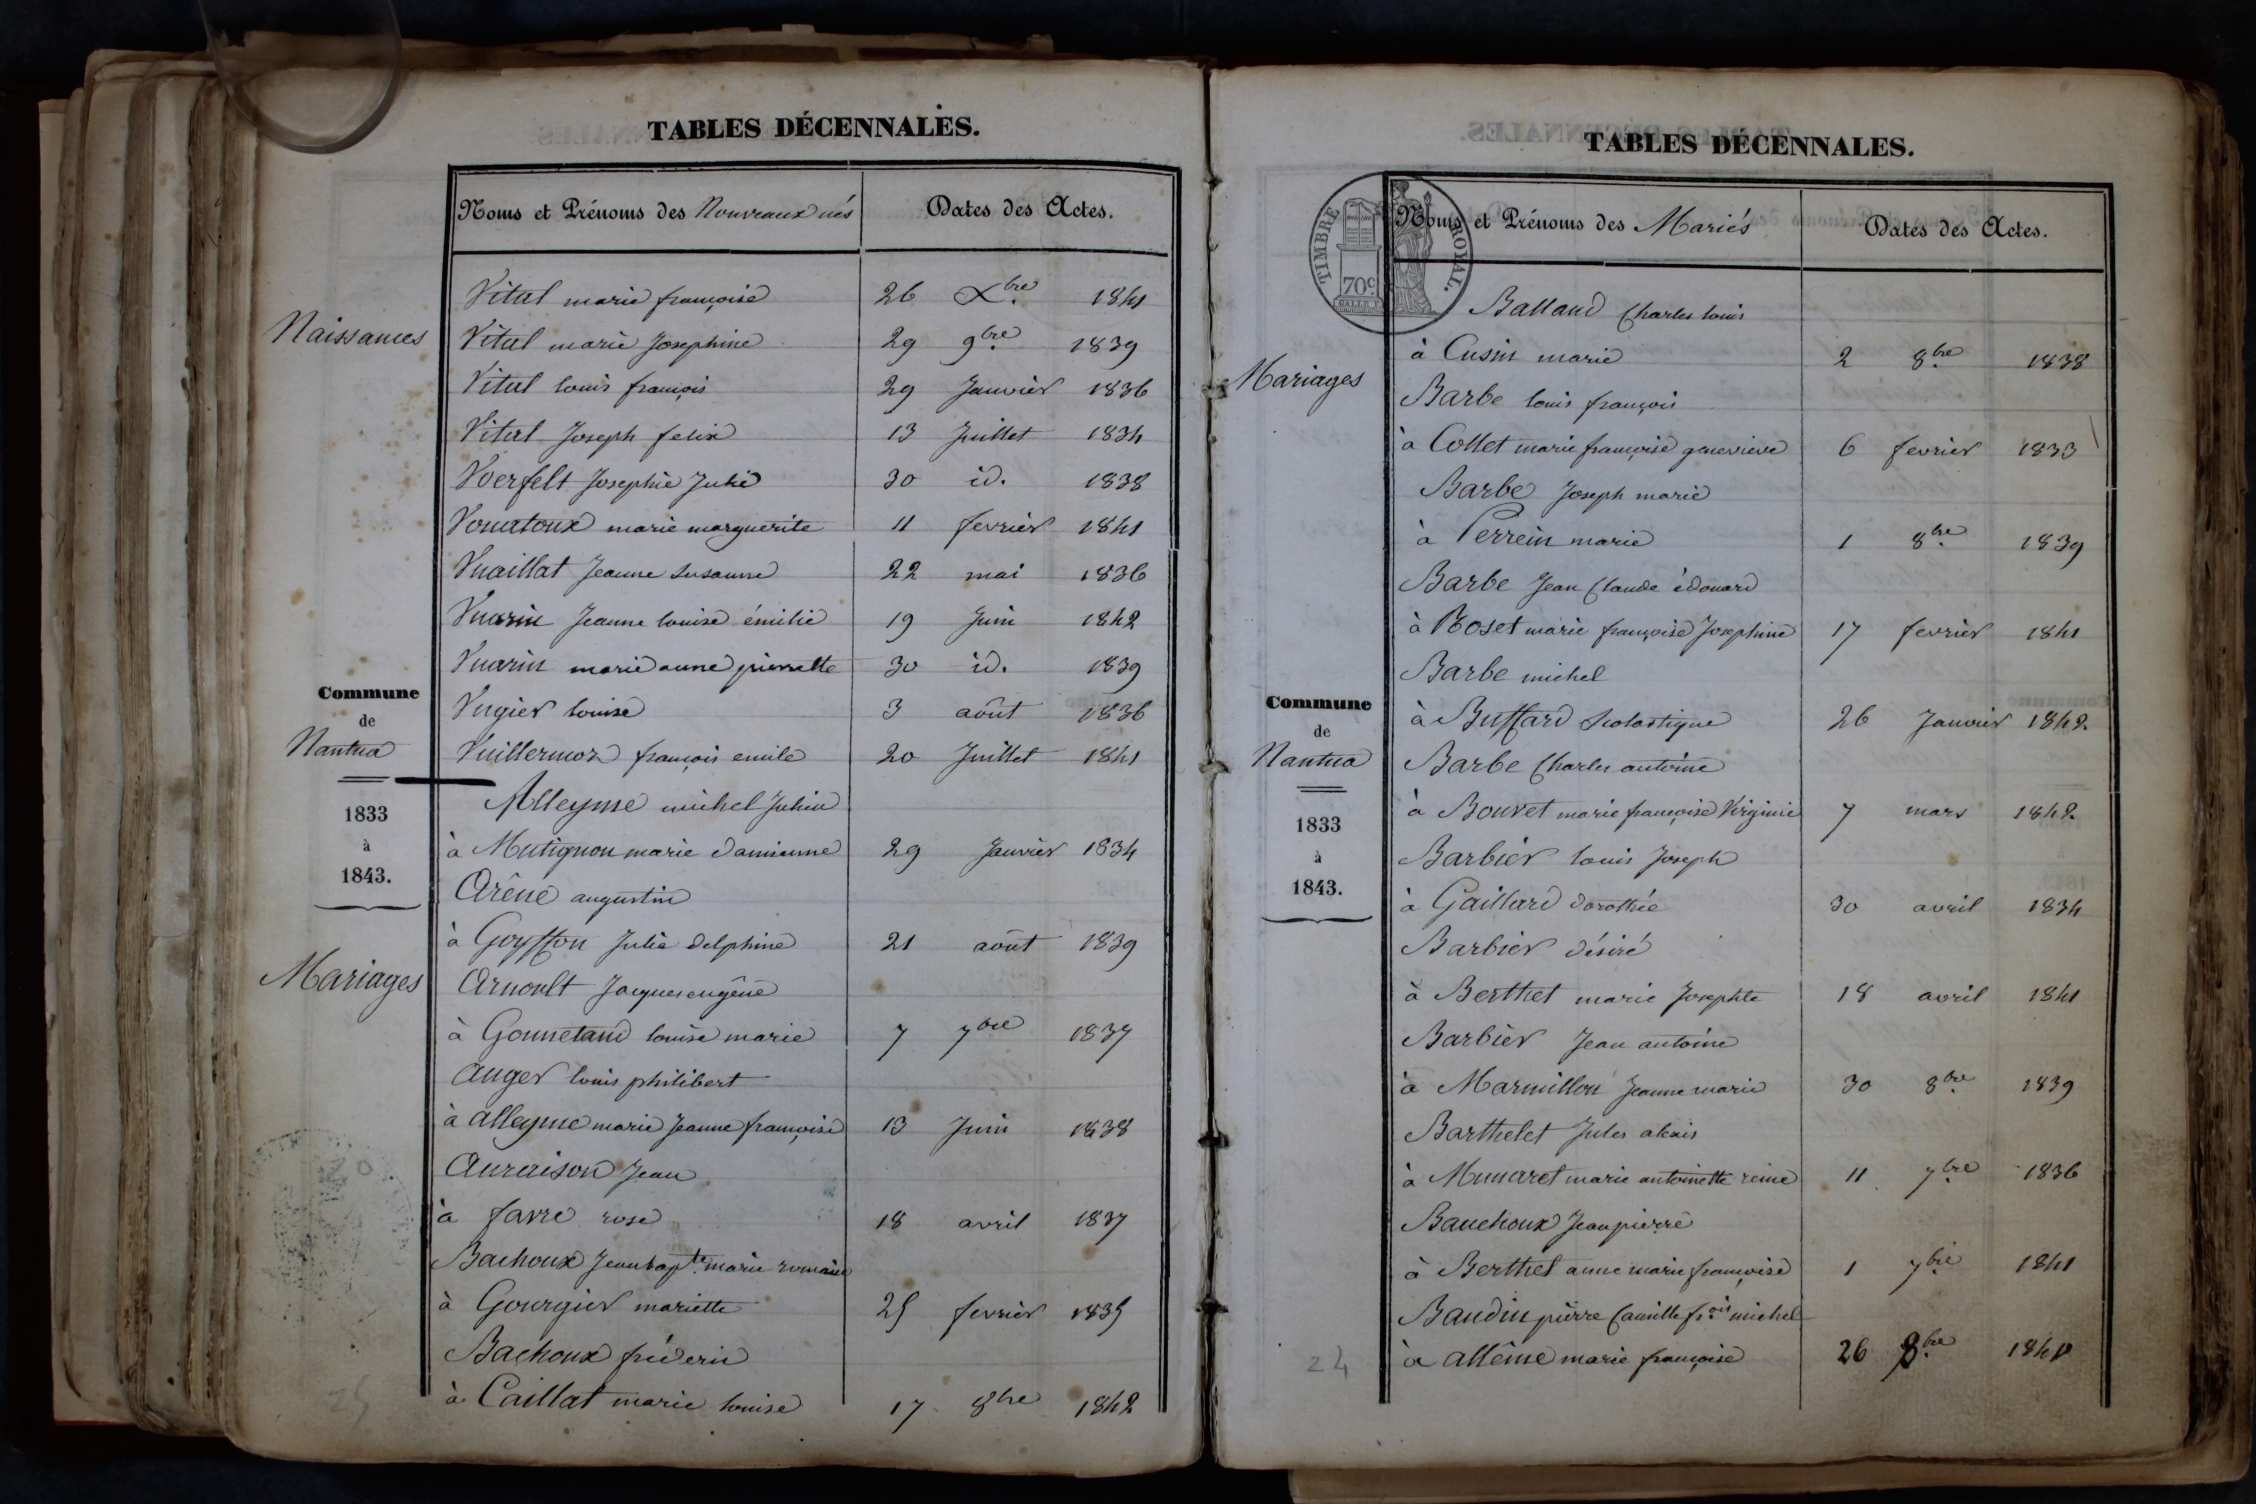 TABLES DÉCENNALES.
Noms et Prénoms des Nouveaux nés
Dates des Actes.
Naissances
Vital marie françoise 26 Xbre 1841
Vital marie Josephine 29 9bre 1839
Vital louis françois 29 Janvier 1836
Vital Joseph felix 13 Juillet 1834
Voerfelt Josephie Julie 30 id. 1838
Vouatoux marie marguerite 11 fevrier 1841
Vuaillat Jeanne Susanne 22 mai 1836
Vuarin Jeanne louise émilie 19 Juin 1842
Vuarin marie anne pierrette 30 id. 1839
Vugier louise 3 août 1836
Vuillermoz françois emile 20 Juillet 1841
Commune
de
Nantua
1833
à
1843.
Mariages
Alleyme michel Julien
à Mutignon marie damienne 29 Janvier 1834
Arêne augustin
à Goyffon Julie delphine 21 août 1839
Arnoult Jacques eugêne
à Gonnetand louise marie 7 7bre 1837
Auger louis philibert
à alleyme marie Jeanne françoise 13 Juin 1838
Auraison Jean
à favre rose 18 avril 1837
Bachoux Jean bapte marie romain
à Gourgier mariette 25 fevrier 1835
Bachoux fréderic
à Caillat marie louise 17 8bre 1842
25
TABLES DÉCENNALES.
TIMBRE ROYAL.
70c
Noms et Prénoms des Mariés
Dates des Actes.
Mariages
Balland Charles louis
à Cusin marie 2 8bre 1838
Barbe louis françois
à Collet marie françoise genevieve 6 fevrier 1833
Barbe Joseph marie
à Perrein marie 1 8bre 1839
Barbe Jean Claude édouard
à Roset marie françoise Josephine 17 fevrier 1841
Barbe michel
à Buffard Scolastique 26 Janvier 1842
Barbe Charles antoine
à Bouvet marie françoise Virginie 7 mars 1842
Barbier louis Joseph
à Gaillard dorothée 30 avril 1834
Barbier désiré
à Berthet marie Josephte 18 avril 1841
Barbier Jean antoine
à Marmillon Jeanne marie 30 8bre 1839
Barthelet Jules alexis
à Munaret marie antoinette reine 11 7bre 1836
Bauchoux Jean pierre
à Berthet anne marie françoise 1 7bre 1841
Baudin pierre Camille fcois michel
à allême marie françoise 26 8bre 1840
Commune
de
Nantua
1833
à
1843.
24